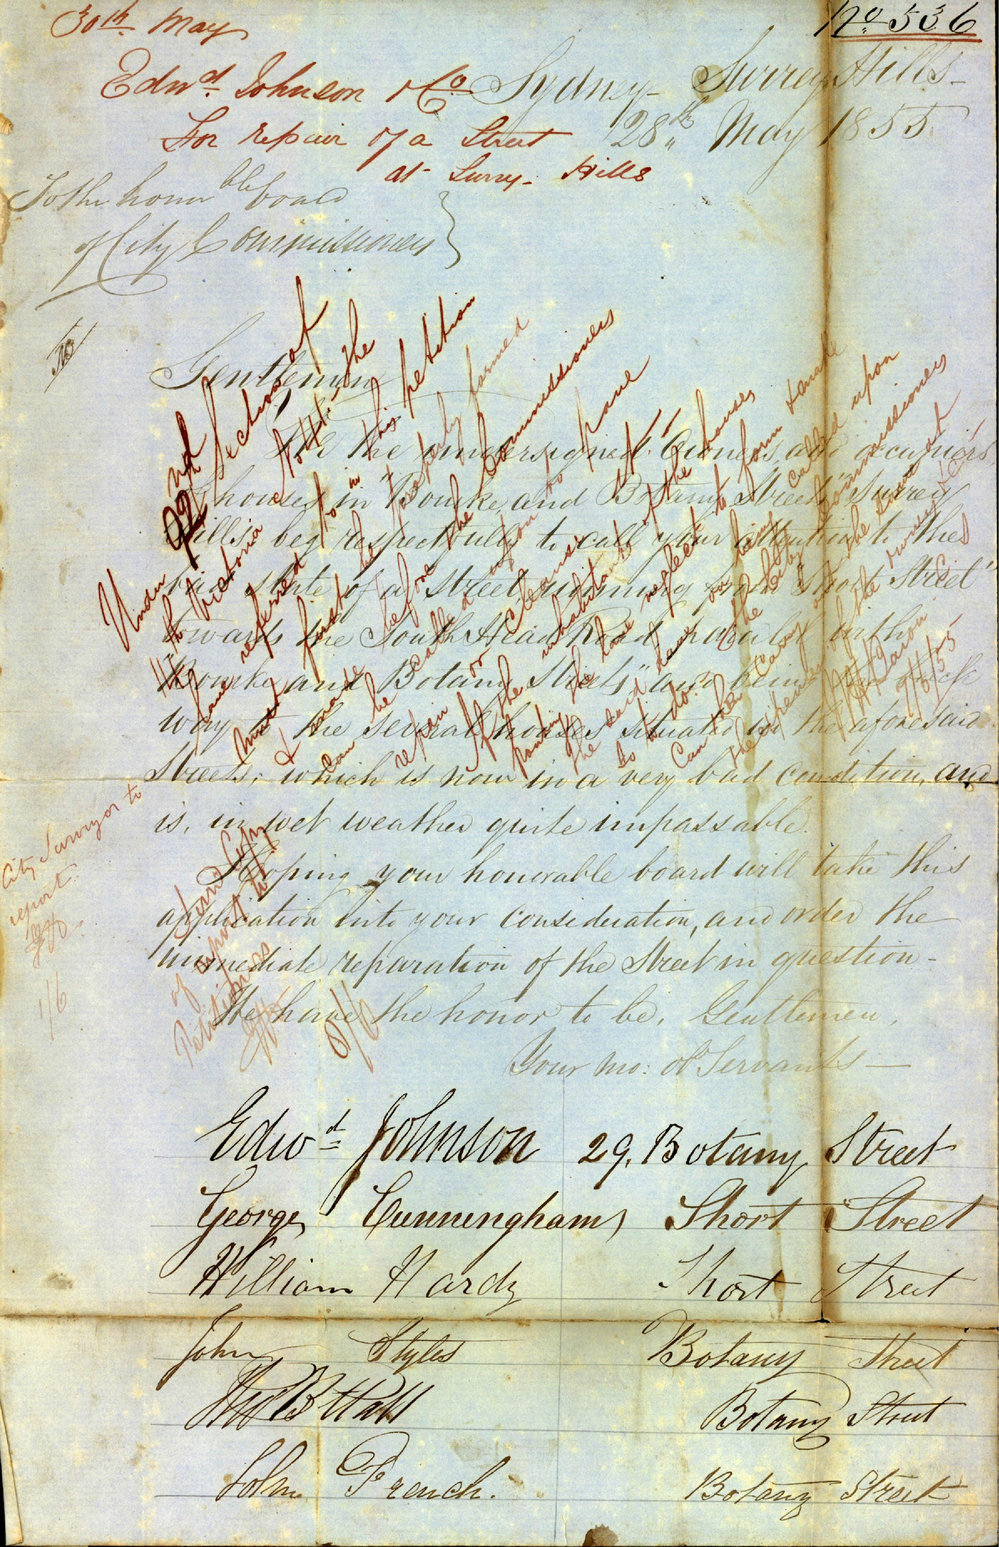 30th May
No 536
Edwd. Johnson & Co
For repair of a Street
at Surry Hills
Sydney Surrey Hills
28th May 1855
To the honorble board
of City Commissioners
Gentlemen
We the undersigned Owners, and occupiers
of houses in "Bourke, and Botany Streets" Surrey
Hills, beg respectfully to call your attention to the
state of a Street, running from "Short Street"
towards the South Head Road parallel with
"Bourke, and Botany Streets," and being
way to the several houses situated in the aforesaid
Streets, which is now in a very bad condition, and
is, in wet weather quite impassable.
Hoping your honorable board will take this
application into your consideration, and order the
immediate reparation of the Street in question -
We have the honor to be, Gentlemen,
Your mo: ob Servants
Edwd Johnson 29, Botany Street
George Cunningham Short Street
William Hardy Short Street
John Styles Botany Street
Thos B Hall Botany Street
John French. Botany Street
Under 92nd Section of
14th Victoria No 41 the
lane referred to in this petition
must first be properly formed
& made before the Commissioners
can be called upon to pave
repair or cleanse it.
If the inhabitants of the houses
the lane neglect to form & make
the said lane on being called upon
so to do the City Commissioners
can then carry out the
the expense of the owners &c
1/6/55
City Surveyor to
report.
1/6
Send Copy
of report to
Petitioners
8/6